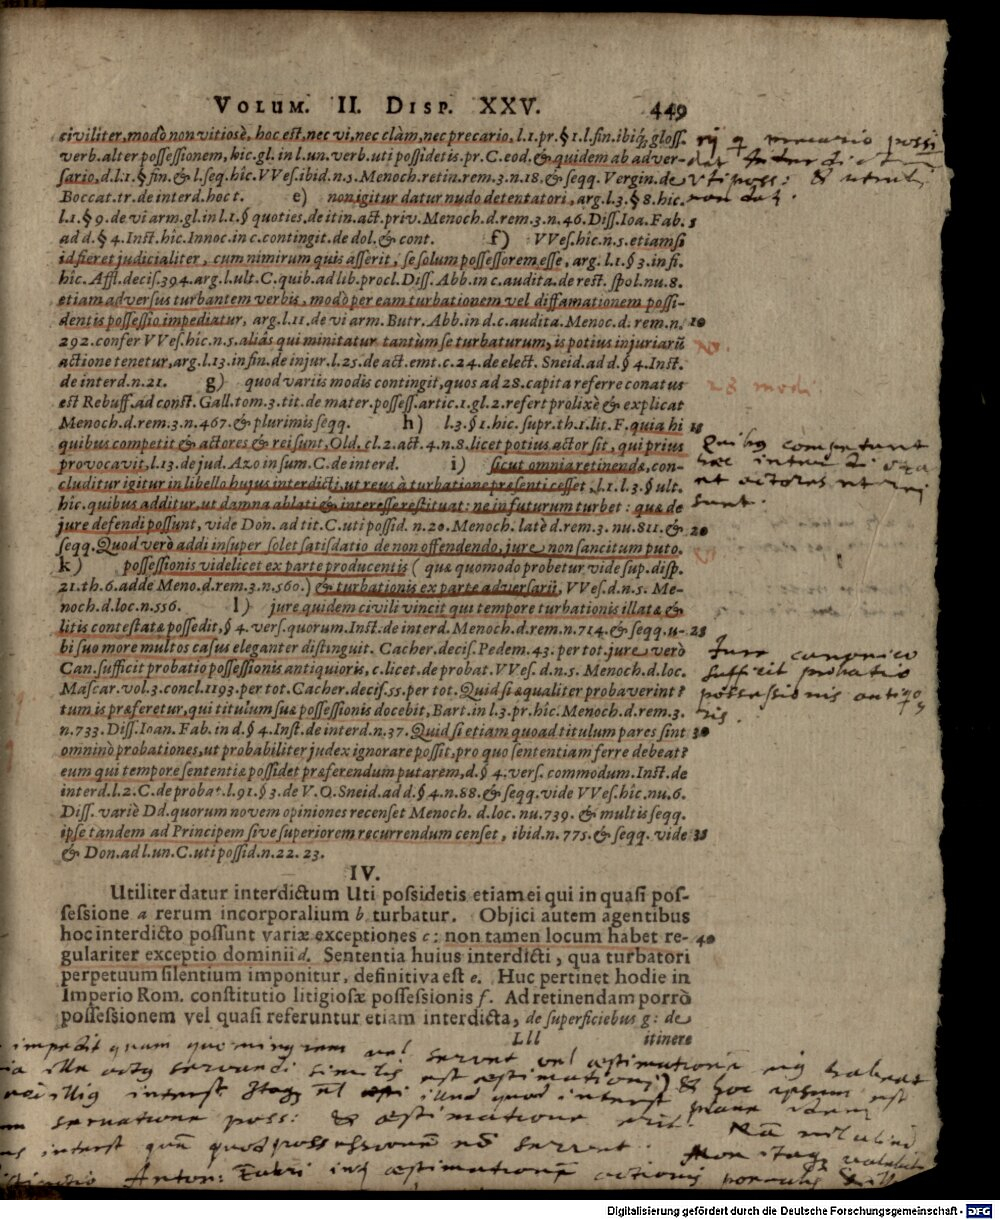 VOLUM. II. DISP. XXV. 449
civiliter, modò non vitiosè, hoc est, nec vi, nec clàm, nec precario, l.1.pr.§ 1.l.fin.ibiq́; gloss.
verb. alter possessionem, hic.gl. in l.un. verb. uti possidetis pr. C. eod. & quidem ab adver-
sario, d.l.1.§ fin. & l.seq. hîc. VVes. ibid. n.5. Menoch. retin. rem. 3. n. 18. & seqq. Vergin. de
Boccat. tr. de interd. hoc t. e) non igitur datur nudo detentatori, arg. l.3.§ 8. hîc.
l.1.§ 9. de vi arm. gl. in l.1.§ quoties. de itin. act. priv. Menoch. d. rem. 3. n. 46. Diss. Ioa. Fab. 5
ad d.§ 4. Inst. hîc. Innoc. in c. contingit. de dol. & cont. f) VVes. hîc. n.5. etiamsi
id fieret judicialiter, cum nimirum quis asserit, se solum possessorem esse, arg. l.1.§ 3. in fi.
hîc. Affl. decis. 394. arg. l. ult. C. quib. ad lib. procl. Diss. Abb. in c. audita. de rest. spol. nu. 8.
etiam adversus turbantem verbis, modò per eam turbationem vel diffamationem possi-
dentis possessio impediatur, arg. l.11. de vi arm. Butr. Abb. in d.c. audita. Menoc. d. rem. n. 10
292. confer VVes. hîc. n.5. aliàs qui minitatur tantùm se turbaturum, is potius injuriarũ
actione tenetur, arg. l.13. in fin. de injur. l.25. de act. emt. c.24. de elect. Sneid. ad d.§ 4. Inst.
de interd. n.21. g) quod variis modis contingit, quos ad 28. capita referre conatus
est Rebuff. ad const. Gall. tom. 3. tit. de mater. possess. artic. 1. gl. 2. refert prolixè & explicat
Menoch. d. rem. 3. n. 467. & plurimis seqq. h) l.3.§ 1. hîc. supr. th. 1. lit. F. quia hi 15
quibus competit & actores & rei sunt, Old. cl. 2. act. 4. n. 8. licet potius actor sit, qui prius
provocavit, l.13. de jud. Azo in sum. C. de interd. i) sicut omnia retinendæ, con-
cluditur igitur in libello hujus interdicti, ut reus à turbatione præsenti cesset, l.1. l.3.§ ult.
hîc. quibus additur, ut damna ablati & interesse restituat: ne in futurum turbet: quæ de
jure defendi possunt, vide Don. ad tit. C. uti possid. n. 20. Menoch. latè d. rem. 3. nu. 811. & 20
seqq. Quod verò addi insuper solet satisdatio de non offendendo, jure non sancitum puto.
k) possessionis videlicet ex parte producentis (quæ quomodo probetur vide sup. disp.
21. th. 6. adde Meno. d. rem. 3. n. 560.) & turbationis ex parte adversarii, VVes. d.n.5. Me-
noch. d. loc. n. 556. l) jure quidem civili vincit qui tempore turbationis illatæ &
litis contestatæ possedit, § 4. vers. quorum. Inst. de interd. Menoch. d. rem. n. 714. & seqq. u- 25
bi suo more multos casus eleganter distinguit. Cacher. decis. Pedem. 43. per tot. jure verò
Can. sufficit probatio possessionis antiquioris, c. licet. de probat. VVes. d.n.5. Menoch. d. loc.
Mascar. vol. 3. concl. 1193. per tot. Cacher. decis. 55. per tot. Quid si æqualiter probaverint?
tum is præferetur, qui titulum suæ possessionis docebit, Bart. in l.3. pr. hîc. Menoch. d. rem. 3.
n. 733. Diss. Ioan. Fab. in d.§ 4. Inst. de interd. n. 37. Quid si etiam quoad titulum pares sint 30
omninò probationes, ut probabiliter judex ignorare possit, pro quo sententiam ferre debeat?
eum qui tempore sententiæ possidet præferendum putarem, d.§ 4. vers. commodum. Inst. de
interd. l.2. C. de probat. l.91.§ 3. de V.O. Sneid. ad d.§ 4. n. 88. & seqq. vide VVes. hîc. nu. 6.
Diss. variè Dd. quorum novem opiniones recenset Menoch. d. loc. nu. 739. & multis seqq.
ipse tandem ad Principem sive superiorem recurrendum censet, ibid. n. 775. & seqq. vide 35
& Don. ad l. un. C. uti possid. n. 22. 23.
IV.
Utiliter datur interdictum Uti possidetis etiam ei qui in quasi pos-
sessione a rerum incorporalium b turbatur. Objici autem agentibus
hoc interdicto possunt variæ exceptiones c: non tamen locum habet re- 40
gulariter exceptio dominii d. Sententia huius interdicti, qua turbatori
perpetuum silentium imponitur, definitiva est e. Huc pertinet hodie in
Imperio Rom. constitutio litigiosæ possessionis f. Ad retinendam porrò
possessionem vel quasi referuntur etiam interdicta, de superficiebus g: de
Lll itinere
precario possi
det Interdictum
Uti poss: & utrubi
non datur.
28 modi
Quibus competunt
hæc interdicta
et actores et rei
sunt.
Jure canonico
sufficit probatio
possessionis antiquio
ris.
servet vel æstimationem
servandi similis est æstimationi & hoc ipsum est
interest illud quod interest plane idem
servatione poss: & æstimatione
interest quam quod possessionem servent.
Anton: Fabri æstimationem actionis
Digitalisierung gefördert durch die Deutsche Forschungsgemeinschaft - DFG